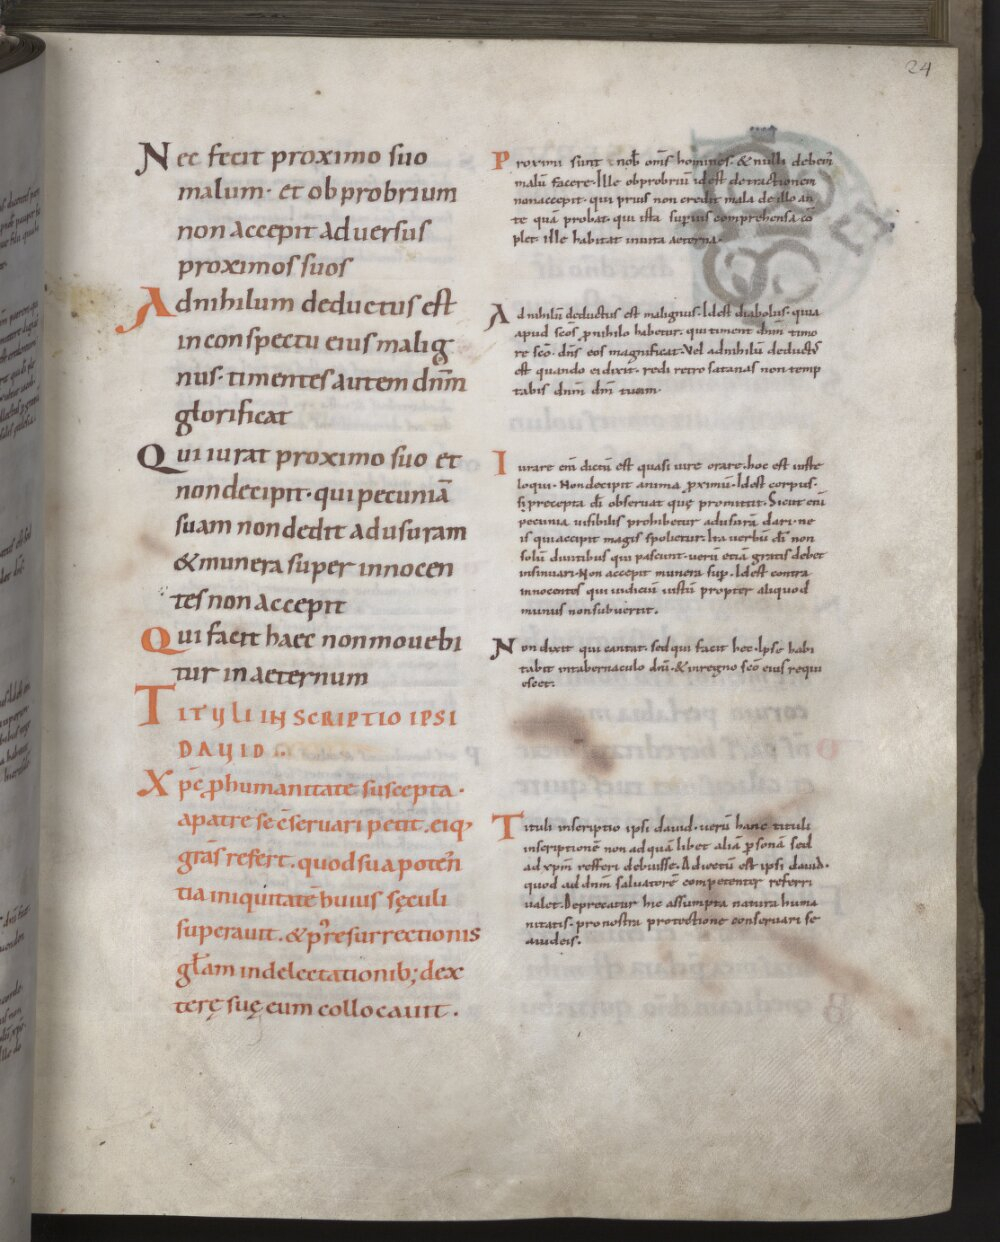 24
Nec fecit proximo suo
malum· et obprobrium
non accepit adversus
proximos suos
Adnihilum deductus est
in conspectu eius malig
nus· timentes autem dnm̄
glorificat
Qui iurat proximo suo et
non decipit· qui pecuniā
suam non dedit ad usuram
& munera super innocen
tes non accepit
Qui facit haec non movebi
tur in aeternum
TITULI INSCRIPTIO IPSI
DAVID
Xpc̄ p̱ humanitate suscepta·
a patre se c̄servari petit. eiq;
grās refert. quod sua potēn
tia iniquitatē huius sęculi
superavit. & pꝰ resurrectionis
glām in delectationib; dex
terę suę eum collocavit.
Proximi sunt nob̄ om̄s homines· & nulli debem̄
malū facere· Ille obprobriū id est detractionem
non accepit· qui prius non credit mala de illo an
te quā probat· qui ista supius comprehensa cō
plet ille habitat in vita aeterna·
Ad nihilū deductus est malignus· Id est diabolus· quia
apud scōs p̱ nihilo habetur· qui timent dnm̄ timo
re scō· dn̄s eos magnificat· Vel ad nihilū deductꝰ
est quando ei dixit· redi retro satanas non temp
tabis dnm̄ dm̄ tuum·
Iurare enī dictū est quasi iure orare· hoc est iuste
loqui· Non decipit anima p̱ximū· Id est corpus·
si p̄cepta dī observat quę promittit· Sicut enī
pecunia visibilis prohibetur ad usurā dari· ne
is qui accipit magis spolietur· Ita verbū dī non
solū divitibus qui pascunt· verū etiā gratis debet
insinuari· Non accepit munera sup̱· Id est contra
innocentes qui iudiciū iustū propter aliquod
munus non subvertit.
Non dixit qui cantat· sed qui facit hec· Ipse habi
tabit in tabernaculo dnī· & in regno scō eius requi
escet·
Tituli inscriptio ipsi david· verū hanc tituli
inscriptionē non ad quā libet aliā p̱sonā sed
ad xpm̄ refferi debuisse· Adiectū est ipsi david·
quod ad dnm̄ salvatorē competenter referri
valet· Deprecatur hic assumpta natura huma
nitatis· pro nostra protectione conservari se